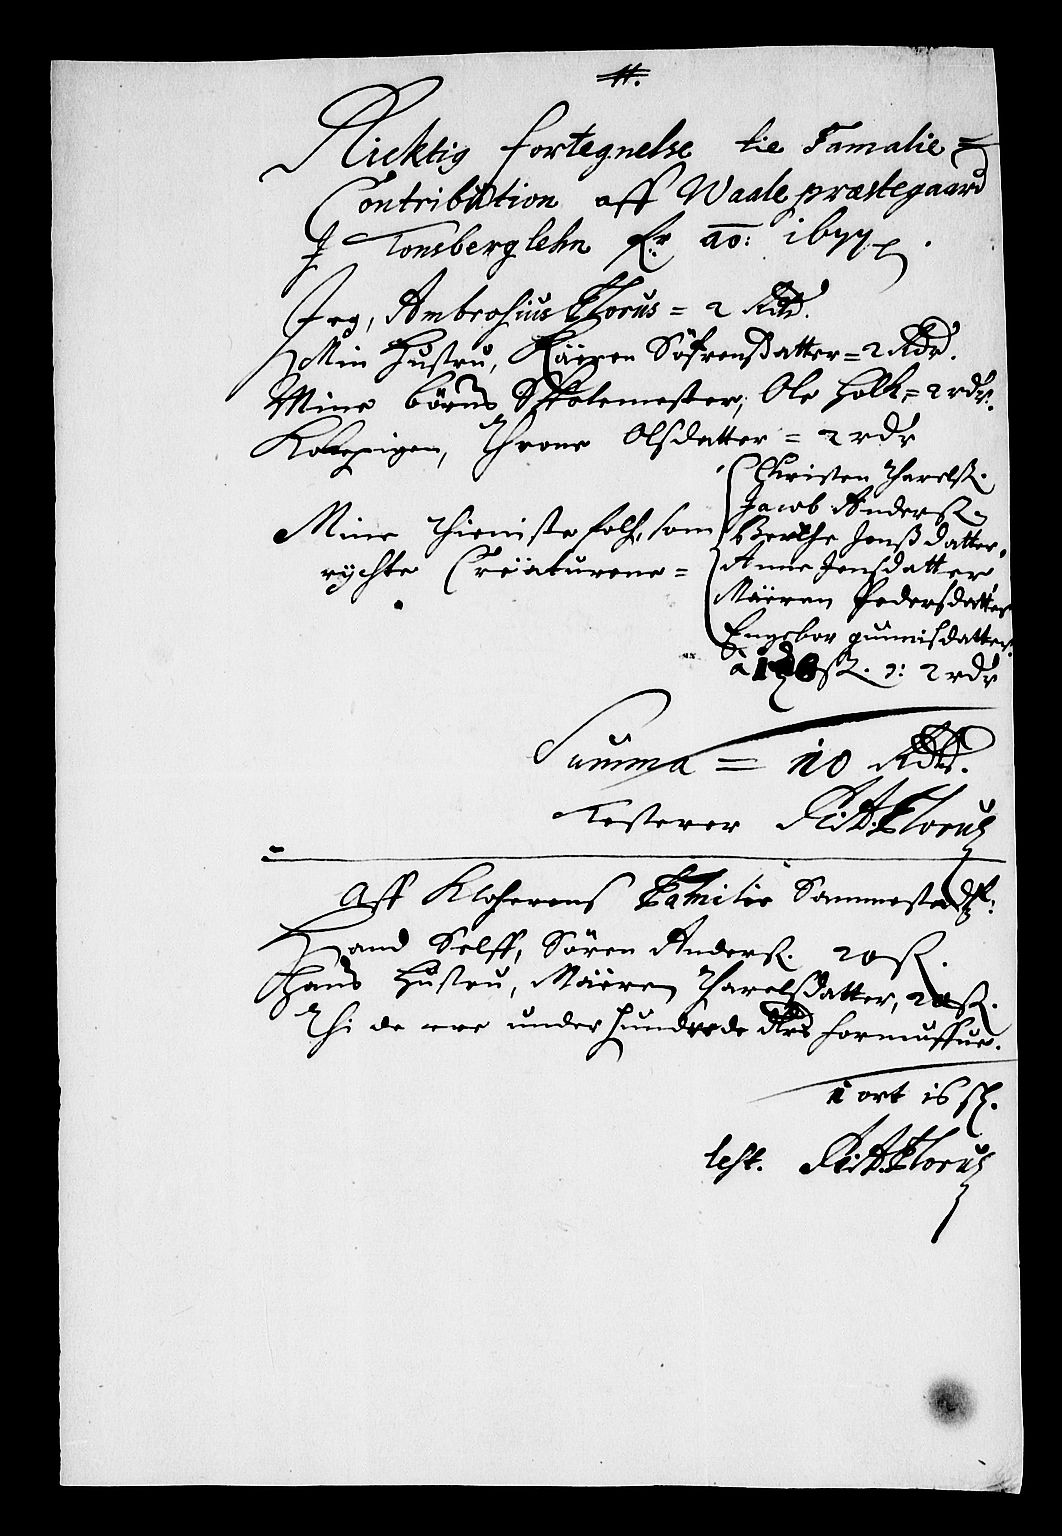 Ricktig fortegnelse till Famalie =
Contribution aff Waale præstegaard
J Tonsberg lehn for ao: 1677.
Jeg, Ambrosius Florus = 2 Rdr.
Min Hustru, Käiren Söfrensdatter = 2 Rdr.
Mine børns Skolemester, Ole Holk = 2 rdr.
Kokepigen, Throne Olsdatter = 2 rdr
Mine thieniste folk, som
rychte Creäturene =
Christen Tharelß.
Jacob Anderß.
Berthe Jenßdatter.
Anne Jensdatter
Mäeren Pedersdatter
Engebor gunnisdatter.
à ß. ɔ: 2 rdr
Summa = 10 Rdr.
Testerer A. Florus
Aff Klokerens Familie Sammesteds:
Hand Selff, Søren Anderß. 20 ß.
Hans Hustru, Mäeren Tharelsdatter, 20 ß.
Thi de ere under hundrede dlrs formuffue.
1 ort 16 ß.
test. A. Florus